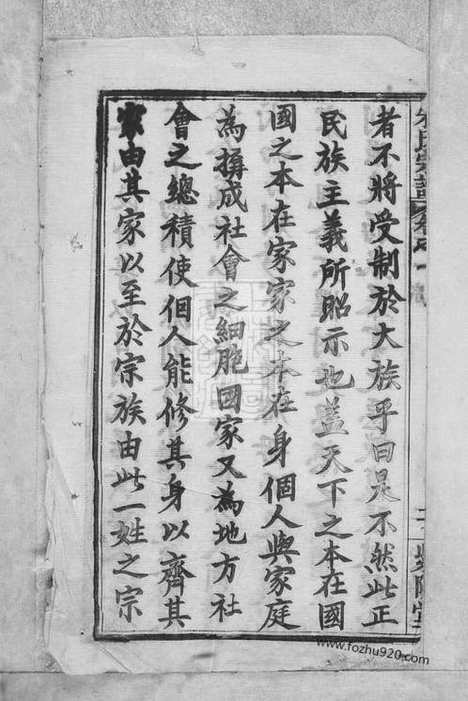 者不將受制於大族乎曰是不然此正
民族主義所昭示也蓋天下之本在國
國之本在家家之本在身個人與家庭
為搆成社會之細胞囯家又為地方社
會之總積使個人能修其身以齊其
家由其家以至於宗族由此一姓之宗
www.fozhu920.com